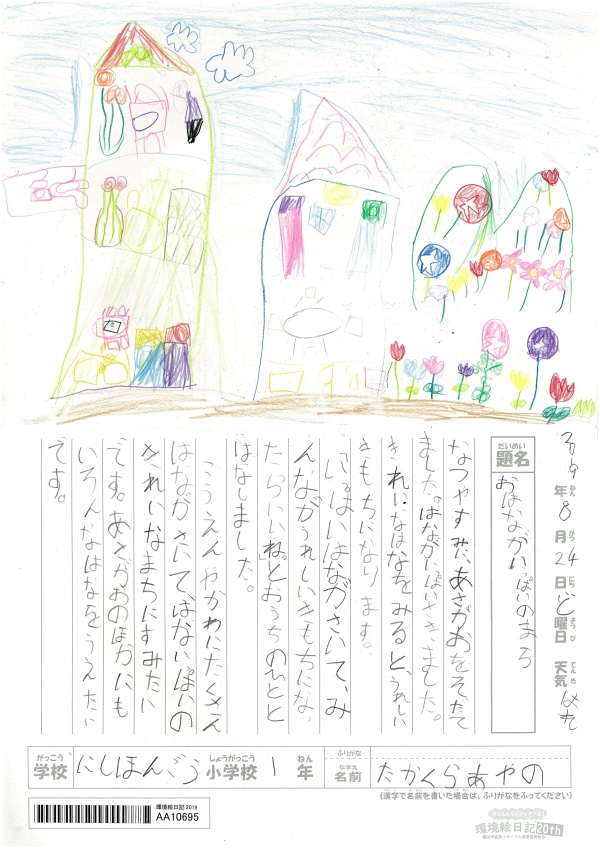 2019年8月24日ど曜日 天気 はれ
ねん がつ にち ようび てんき
だいめい
題名 おはながいっぱいのまち
なつやすみに、あさがおをそだて
ました。はながいっぱいさきました。
きれいなはなをみると、うれしい
きもちになります。
「いっぱいはながさいて、み
んながうれしいきもちになっ
たらいいね。」とおうちのひとと
はなしました。
こうえんやかわにたくさん
はながさいて、はないっぱいの
きれいなまちにすみたい
です。あさがおのほかにも
いろんなはなをうえたい
です。
がっこう しょうがっこう ねん ふりがな
学校 にしほんごう 小学校 1 年
なまえ
名前 たかくらあやの
(漢字で名前を書いた場合は、ふりがなをふってください)
環境絵日記2019
AA10695
環境絵日記20th